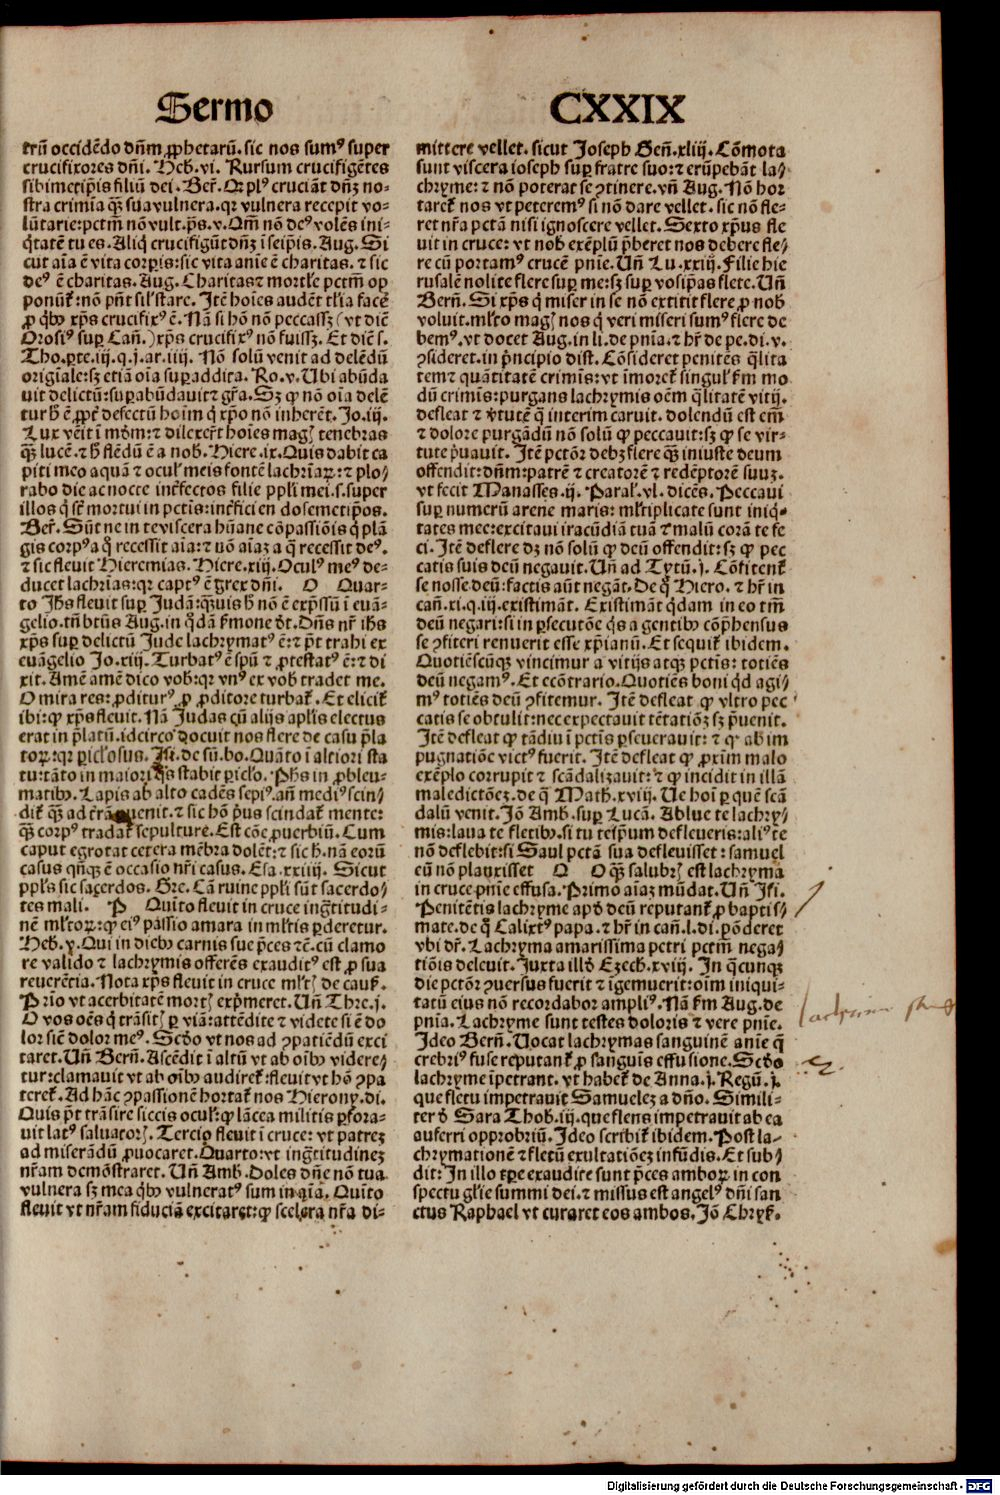 Sermo
CXXIX
trũ occidẽdo dñm ꝓphetarũ. sic nos sumꝰ super
crucifixores dñi. Heb. vi. Rursum crucifigẽtes
sibimetip̃is filiũ dei. Ber̃. Qr plꝰ cruciãt dñꝫ no-
stra crimĩa qꝫ̃ sua vulnera. qr vulnera recepit vo-
lũtarie: pctm̃ nõ vult. p̃s. v. Qm̃ nõ deꝰ volẽs ini-
q̃tatẽ tu es. Aliq̃ crucifigũt dñꝫ ĩ seip̃is. Aug. Si
cut aĩa ẽ vita corp̃is: sic vita anĩe ẽ charitas. ⁊ sic
deꝰ ẽ charitas. Aug. Charitas ⁊ mortl̃e pctm̃ op
ponũt̃: nõ pñt sil̃ stare. Itẽ hoĩes audẽt tl̃ia facẽ
ꝓ qͥbꝰ xp̃s crucifixꝰ ẽ. Nã si hõ nõ peccassꝫ (vt diẽ
Orosiꝰ sup̱ Cañ.) xp̃s crucifixꝰ nõ fuissꝫ. Et diẽ s.
Tho. p̱te. iij. q. j. ar. iiij. Nõ solũ venit ad delẽdũ
origĩale: sꝫ etiã oĩa sup̱ addita. Ro. v. Ubi abũda
uit delictũ: sup̱abũdauit ⁊ gr̃a. Sꝫ ꝙ nõ oĩa delẽ
tur h̃ ẽ ꝓpt̃ defectũ hoĩm q̃ xp̃o nõ inherẽt. Jo. iij.
Lux vẽit ĩ mũdm̃: ⁊ dilexer̃t hoĩes magꝭ tenebras
qꝫ̃ lucẽ. ⁊ h̃ flẽdũ ẽ a nob. Hiere. ix. Quis dabit ca
piti meo aquã ⁊ oculꝭ meis fontẽ lachrĩaꝝ: ⁊ plo/
rabo die ac nocte inter̃fectos filie pp̃li mei. s. super
illos q̃ sr̃t mortui in pctĩs: inter̃ficiendo semetip̃os.
Ber̃. Sũt ne in te viscera hũane cõpassiõis q̃ plã
gis corpꝰ a q̃ recessit aĩa: ⁊ nõ aĩaꝫ a q̃ recessit deꝰ.
⁊ sic fleuit Hieremias. Hiere. xiij. Oculꝰ meꝰ de-
ducet lachrĩas: qr captꝰ ẽ grex dñi. O Quar-
to Jh̃s fleuit sup̱ Judã: qꝫ̃uis h̃ nõ ẽ exp̃ssũ ĩ euã-
gelio. tñ btũs Aug. in q̃dã s̃mone d̃t. Dñs nr̃ ih̃s
xp̃s sup̱ delictũ Jude lachrymatꝰ ẽ: ⁊ p̃t trahi ex
euãgelio Jo. xiij. Turbatꝰ ẽ sp̃u ⁊ ꝓtestatꝰ ẽ: ⁊ di
xit. Amẽ amẽ dico vob: qr vnꝰ ex vob tradet me.
O mira res: ꝓditurꝰ ꝓ ꝓditore turbat̃. Et elicit̃
ibi: ꝙ xp̃s fleuit. Nã Judas cũ alijs apl̃is electus
erat in p̃latũ. idcirco docuit nos flere de casu p̃la
toꝝ: qr p̱icl̃osus. Jsi. de sũ. bo. Quãto ĩ altiori sta
tu: tãto in maiori is stabit p̱icl̃o. Ph̃s in ꝓbleu-
matibꝰ. Lapis ab alto cadẽs sepiꝰ. añ mediꝰ scin/
dit̃ qꝫ̃ ad trã ꝑuenit. ⁊ sic hõ p̃us scindat̃ mente:
qꝫ̃ corpꝰ tradat̃ sepulture. Est cõe ꝓuerbiũ. Cum
caput egrotat cetera mẽbra dolẽt: ⁊ sic h. nã eorũ
casus qñqꝫ ẽ occasio nr̃i casus. Esa. xxiiij. Sicut
pp̃l̃s sic sacerdos. Gre. Cã ruine pp̃li sũt sacerdo/
tes mali. P Quĩto fleuit in cruce ing̃titudi-
nẽ ml̃toꝝ: ꝙ eiꝰ passio amara in ml̃tis p̱deretur.
Heb. v. Qui in diebꝰ carnis sue p̃ces ⁊c̃. cũ clamo
re valido ⁊ lachrymis offerẽs exauditꝰ est ꝓ sua
reuerẽtia. Nota xp̃s fleuit in cruce ml̃tꝭ de caus̃.
Prĩo vt acerbitatẽ mortꝭ exp̃meret. Uñ Thre. j.
O vos oẽs q̃ trãsitꝭ p̱ viã: attẽdite ⁊ videte si ẽ do
lor siẽ dolor meꝰ. Scd̃o vt nos ad ꝯpatiẽdũ exci
taret. Uñ Berñ. Ascẽdit ĩ altũ vt ab oĩbꝰ videre/
tur: clamauit vt ab oĩbꝰ audiret̃: fleuit vt hõ ꝯpa
teret̃. Ad hãc ꝯpassionẽ hortat̃ nos Hierony. di.
Quis p̃t trãsire siccis oculꝭ: ꝙ lãcea militis p̱fora-
uit latꝰ saluatorꝭ. Tercio fleuit ĩ cruce: vt patreꝫ
ad miserãdũ ꝓuocaret. Quarto: vt ing̃titudineꝫ
nr̃am demõstraret. Uñ Amb. Doles dñe nõ tua
vulnera sꝫ mea qͥbꝰ vulneratꝰ sum in q̃a. Quĩto
fleuit vt nr̃am fiduciã excitaret: ꝙ scelera nr̃a di-
mittere vellet. sicut Joseph Geñ. xliij. Cõmota
sunt viscera ioseph sup̱ fratre suo: ⁊ erũpebãt la/
chryme: ⁊ nõ poterat se ꝯtinere. vñ Aug. Nõ hor
taret̃ nos vt peteremꝰ si nõ dare vellet. sic nõ fle-
ret nr̃a pctã nisi ignoscere vellet. Sexto xp̃us fle
uit in cruce: vt nob exẽplũ p̃beret nos debere fle/
re cũ portamꝰ crucẽ pnĩe. Uñ Lu. xxiij. Filie hie
rusalẽ nolite flere sup̱ me: sꝫ sup̱ vosip̃as flete. Uñ
Berñ. Si xp̃s q̃ miser in se nõ extitit flere ꝓ nob
voluit. ml̃to magꝭ nos q̃ veri miseri sumꝰ flere de
bemꝰ. vt docet Aug. in li. de pnĩa. ⁊ hr̃ de pe. di. v.
ꝯsideret. in p̃ncipio dist. Cõsideret penitẽs q̃lita
tem ⁊ quãtitatẽ crimĩs: vt ĩmoret̃ singulꝭ s̃m mo
dũ crimĩs: purgans lachrymis oẽm q̃litatẽ vitij.
defleat ⁊ v̓tutẽ q̃ interim caruit. dolendũ est em̃
⁊ dolore purgãdũ nõ solũ ꝙ peccauit: sꝫ ꝙ se vir-
tute p̃uauit. Itẽ pctõr debꝫ flere qꝫ̃ iniuste deum
offendit: dñm: patrẽ ⁊ creatorẽ ⁊ redẽptorẽ suuꝫ.
vt fecit Manasses. ij. Paral̃. vl. dicẽs. Peccaui
sup̱ numerũ arene maris: ml̃tiplicate sunt iniq̃-
tates mee: excitaui iracũdiã tuã ⁊ malũ corã te fe
ci. Itẽ deflere dꝫ nõ solũ ꝙ deũ offendit: sꝫ ꝙ pec
catis suis deũ negauit. Uñ ad Tytũ. j. Cõfitent̃
se nosse deũ: factis aũt negãt. De q̃ Hiero. ⁊ hr̃ in
cañ. xi. q. iij. existimãt. Existimãt q̃dam in eo tm̃
deũ negari: si in p̱secutõe q̃s a gentibꝰ cõp̃hensus
se ꝯfiteri renuerit esse xp̃ianũ. Et sequit̃ ibidem.
Quotiẽscũqꝫ vincimur a vitijs atqꝫ pctĩs: totiẽs
deũ negamꝰ. Et ecõtrario. Quotiẽs boni q̃d agi/
mꝰ totiẽs deũ ꝯfitemur. Itẽ defleat ꝙ vltro pec
catis se obtulit: nec expectauit tẽtatiõꝫ sꝫ p̃uenit.
Itẽ defleat ꝙ tãdiu ĩ pctĩs p̱seuerauit: ⁊ ꝙ ab im
pugnatiõe victꝰ fuerit. Itẽ defleat ꝙ ꝓxim̃ malo
exẽplo corrupit ⁊ scãdalizauit: ⁊ ꝙ incidit in illã
maledictõeꝫ. de q̃ Math. xviij. Ue hoĩ p̱ quẽ scã
dalũ venit. Jõ Amb. sup̱ Lucã. Ablue te lachry/
mis: laua te fletibꝰ. si tu teip̃um defleueris: aliꝰ te
nõ deflebit: si Saul pctã sua defleuisset: samuel
eũ nõ planxisset O O qꝫ̃ salubrꝭ est lachryma
in cruce pnĩe effusa. Primo aĩaꝫ mũdat. Uñ Jsi.
Penitẽtis lachryme apd̃ deũ reputant̃ ꝓ baptis/
mate. de q̃ Calixtꝰ papa. ⁊ hr̃ in cañ. l. di. põderet
vbi dr̃. Lachryma amarissima petri pctm̃ nega/
tiõis deleuit. Juxta illd̃ Ezech. xviij. In q̃cunqꝫ
die pctõr ꝯuersus fuerit ⁊ ĩgemuerit: oĩm iniqui-
tatũ eius nõ recordabor ampliꝰ. Nã s̃m Aug. de
pnĩa. Lachryme sunt testes doloris ⁊ vere pnĩe.
Ideo Berñ. Uocat lachrymas sanguinẽ anĩe q̃
crebriꝰ fuse reputant̃ ꝓ sanguĩs effusione. Scd̃o
lachryme ĩpetrant. vt habet̃ de Anna. j. Regũ. j.
que fletu impetrauit Samuelez a dño. Simili-
ter d̃ Sara Thob. iij. que flens impetrauit ab ea
auferri opprobriũ. Ideo scribit̃ ibidem. Post la-
chrymationẽ ⁊ fletũ exultatiõeꝫ infũdis. Et sub/
dit: In illo tp̱e exaudite sunt p̃ces amboꝝ in con
spectu gl̃ie summi dei. ⁊ missus est angelꝰ dñi san
ctus Raphael vt curaret eos ambos. Jõ Chrys̃.
Digitalisierung gefördert durch die Deutsche Forschungsgemeinschaft - DFG